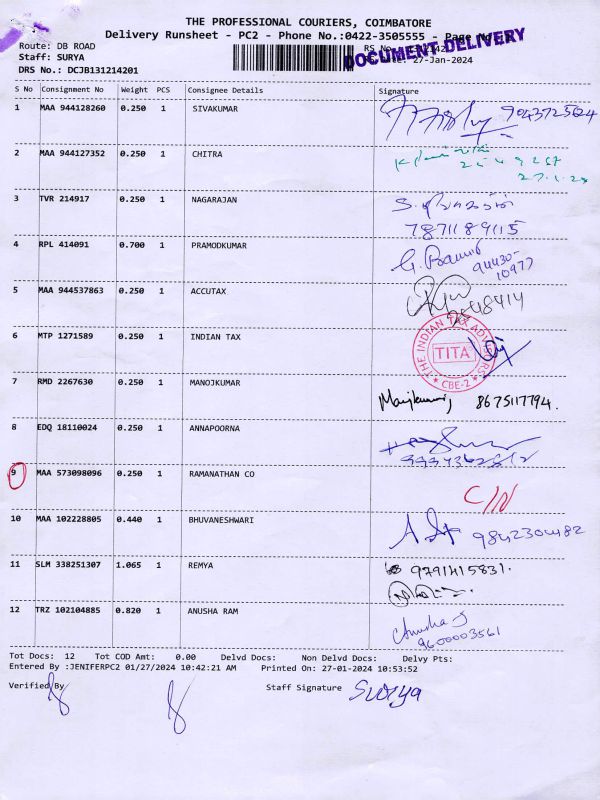 THE PROFESSIONAL COURIERS, COIMBATORE
Delivery Runsheet - PC2 - Phone No.:0422-3505555 - Page
DOCUMENT DELIVERY
Route: DB ROAD
Staff: SURYA
27-Jan-2024
DRS No.: DCJB131214201
S No Consignment No Weight PCS Consignee Details Signature
1 MAA 944128260 0.250 1 SIVAKUMAR 9043725624
2 MAA 944127352 0.250 1 CHITRA
27.1.24
3 TVR 214917 0.250 1 NAGARAJAN
7871189115
4 RPL 414091 0.700 1 PRAMODKUMAR
94430-
10977
5 MAA 944537863 0.250 1 ACCUTAX
48414
6 MTP 1271589 0.250 1 INDIAN TAX
THE INDIAN TAX ADVISERS
TITA
★ CBE-2 ★
7 RMD 2267630 0.250 1 MANOJKUMAR
8675117794.
8 EDQ 18110024 0.250 1 ANNAPOORNA
9 MAA 573098096 0.250 1 RAMANATHAN CO
C/N
10 MAA 102228805 0.440 1 BHUVANESHWARI
9842304482
11 SLM 338251307 1.065 1 REMYA
9791415831.
12 TRZ 102104885 0.820 1 ANUSHA RAM
Anusha J
9600003561
Tot Docs: 12 Tot COD Amt: 0.00 Delvd Docs: Non Delvd Docs: Delvy Pts:
Entered By :JENIFERPC2 01/27/2024 10:42:21 AM Printed On: 27-01-2024 10:53:52
Verified By Staff Signature Surya